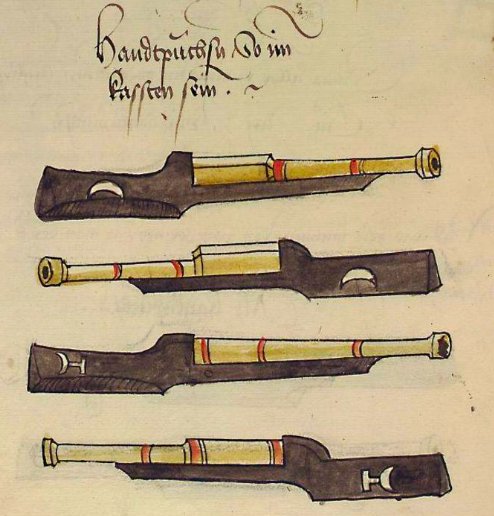 Handtpuchsn So im
kassten sein .